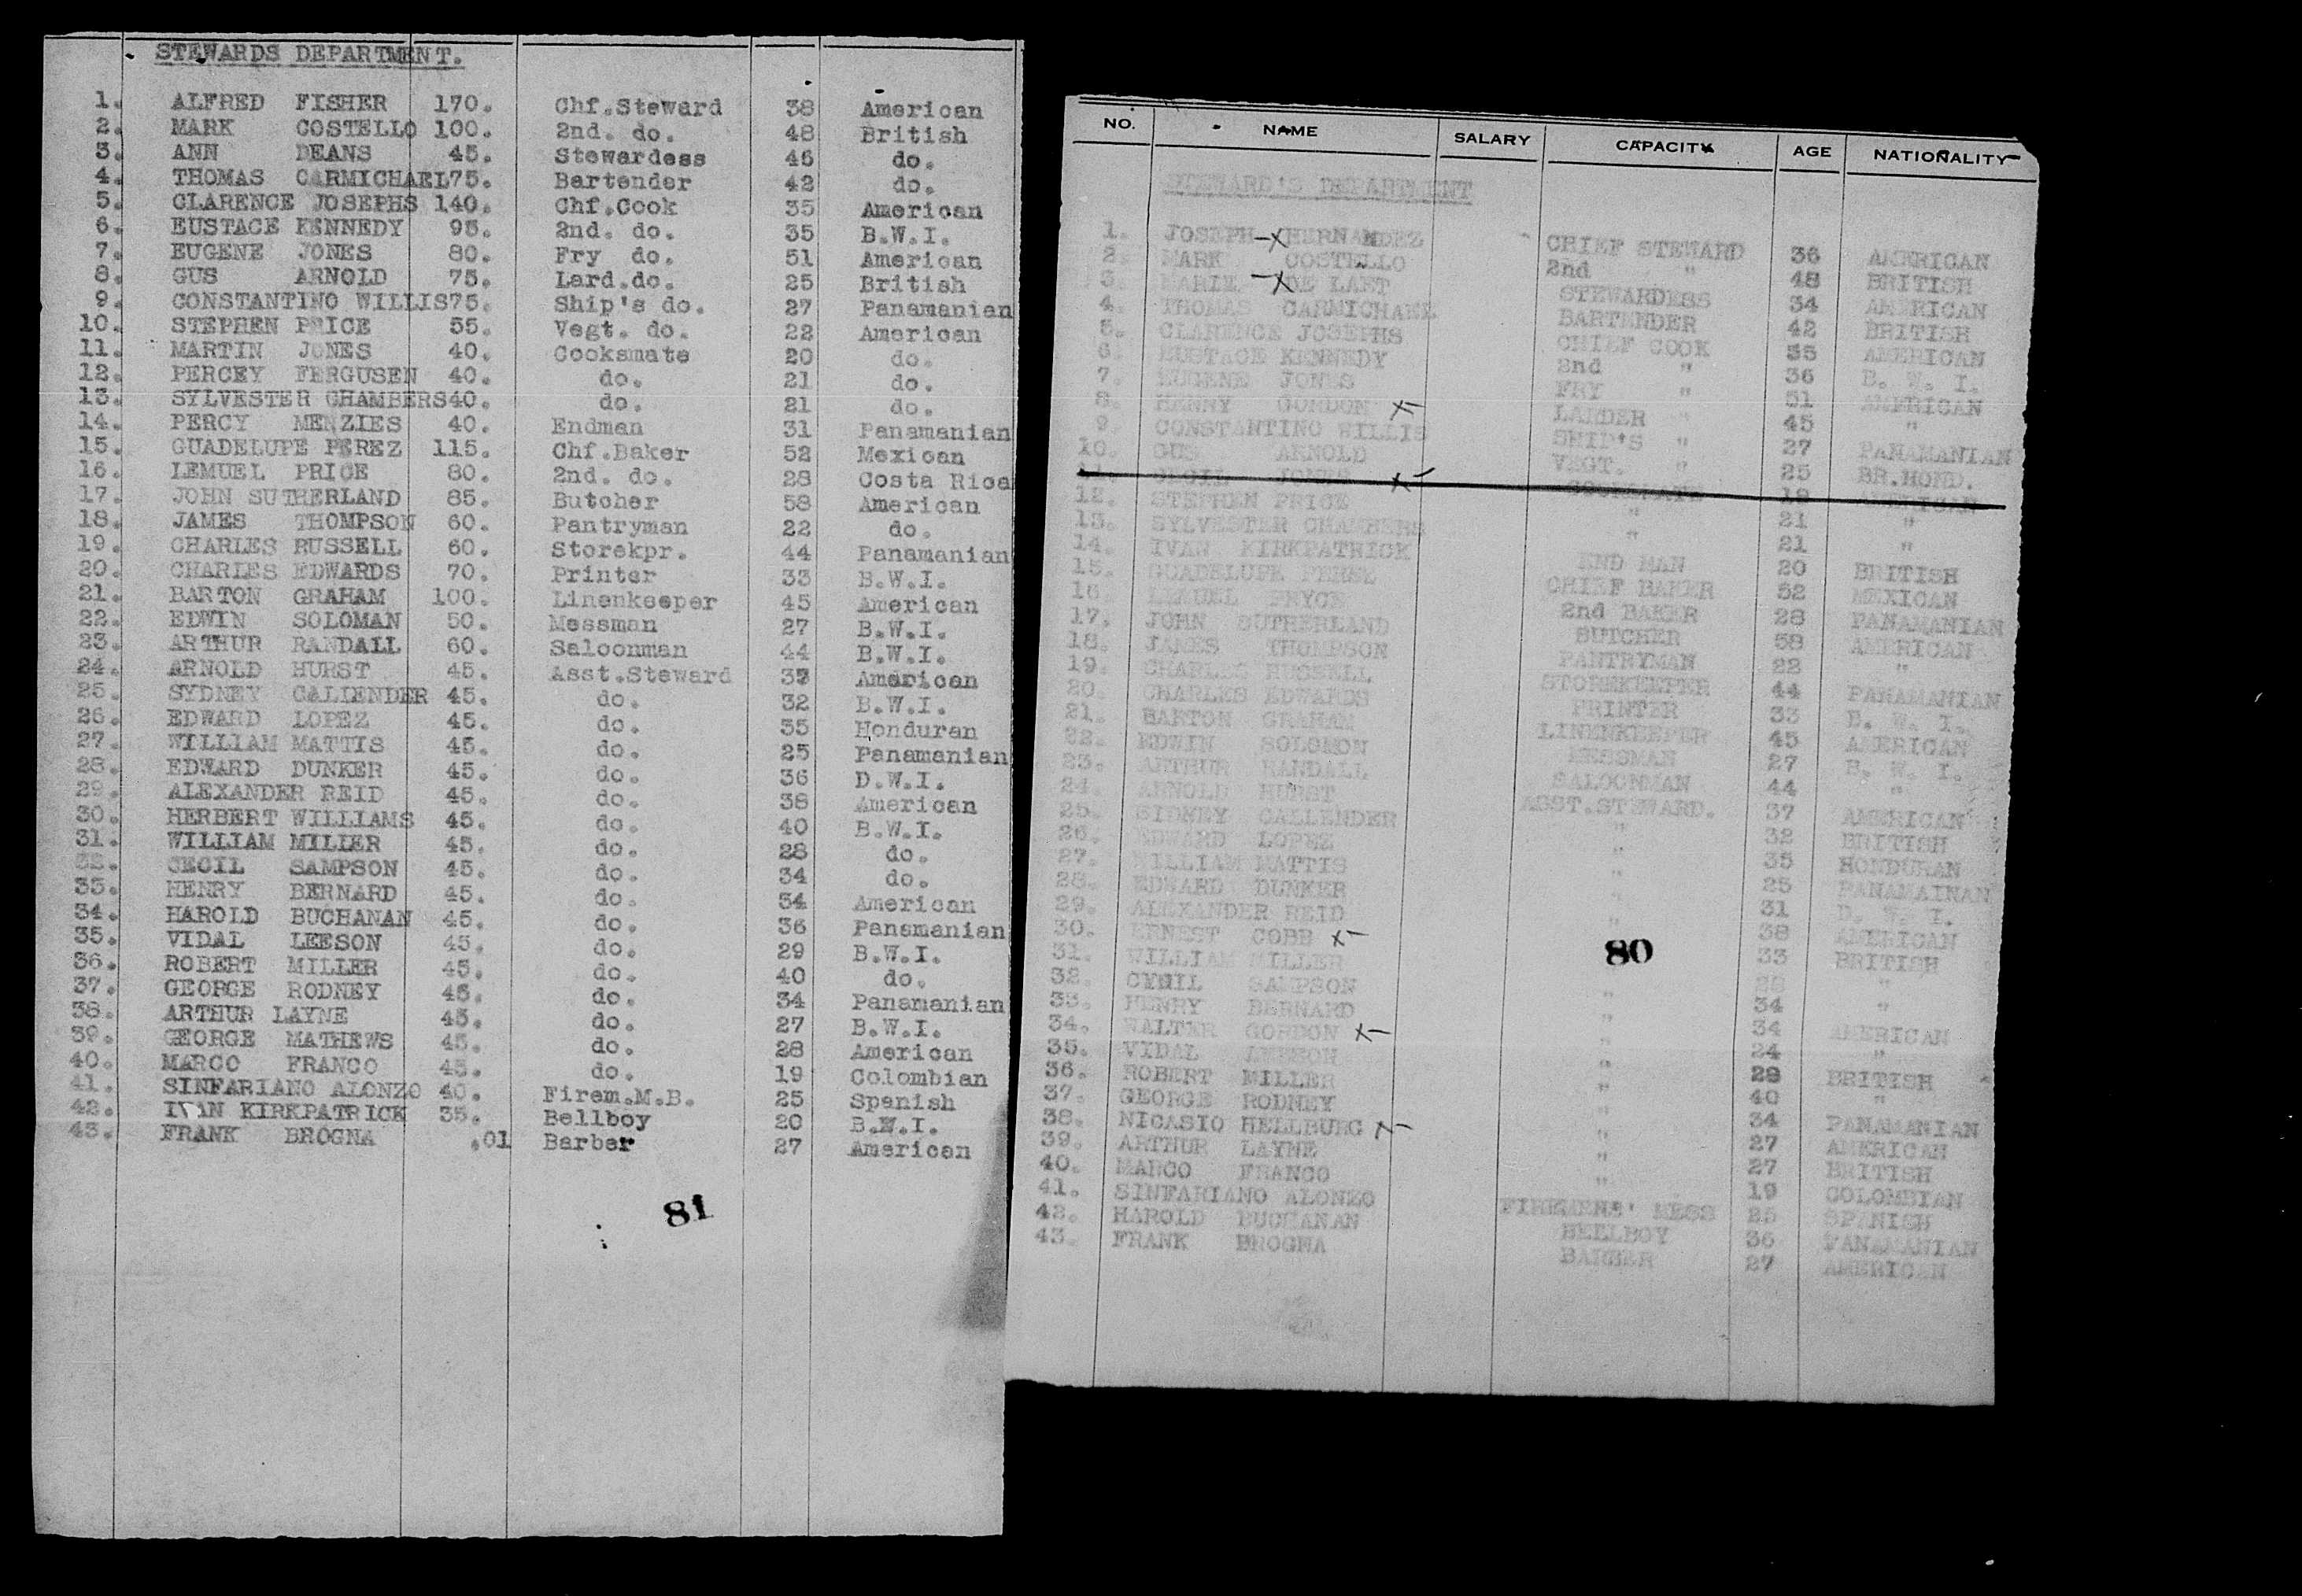 STEWARDS DEPARTMENT.
1. ALFRED FISHER 170. Chf.Steward 38 American
2. MARK COSTELLO 100. 2nd. do. 48 British
3. ANN DEANS 45. Stewardess 46 do.
4. THOMAS CARMICHAEL75. Bartender 42 do.
5. CLARENCE JOSEPHS 140. Chf.Cook 35 American
6. EUSTACE KENNEDY 95. 2nd. do. 35 B.W.I.
7. EUGENE JONES 80. Fry do. 51 American
8. GUS ARNOLD 75. Lard.do. 25 British
9. CONSTANTINO WILLIS75. Ship's do. 27 Panamanian
10. STEPHEN PRICE 55. Vegt. do. 22 American
11. MARTIN JONES 40. Cooksmate 20 do.
12. PERCEY FERGUSEN 40. do. 21 do.
13. SYLVESTER CHAMBERS40. do. 21 do.
14. PERCY MENZIES 40. Endman 31 Panamanian
15. GUADELUPE PEREZ 115. Chf.Baker 52 Mexican
16. LEMUEL PRICE 80. 2nd. do. 28 Costa Rica
17. JOHN SUTHERLAND 85. Butcher 58 American
18. JAMES THOMPSON 60. Pantryman 22 do.
19. CHARLES RUSSELL 60. Storekpr. 44 Panamanian
20. CHARLES EDWARDS 70. Printer 33 B.W.I.
21. BARTON GRAHAM 100. Linenkeeper 45 American
22. EDWIN SOLOMAN 50. Messman 27 B.W.I.
23. ARTHUR RANDALL 60. Saloonman 44 B.W.I.
24. ARNOLD HURST 45. Asst.Steward 37 American
25. SYDNEY CALLENDER 45. do. 32 B.W.I.
26. EDWARD LOPEZ 45. do. 35 Honduran
27. WILLIAM MATTIS 45. do. 25 Panamanian
28. EDWARD DUNKER 45. do. 36 D.W.I.
29. ALEXANDER REID 45. do. 38 American
30. HERBERT WILLIAMS 45. do. 40 B.W.I.
31. WILLIAM MILLER 45. do. 28 do.
32. CECIL SAMPSON 45. do. 34 do.
33. HENRY BERNARD 45. do. 34 American
34. HAROLD BUCHANAN 45. do. 36 Panamanian
35. VIDAL LEESON 45. do. 29 B.W.I.
36. ROBERT MILLER 45. do. 40 do.
37. GEORGE RODNEY 45. do. 34 Panamanian
38. ARTHUR LAYNE 45. do. 27 B.W.I.
39. GEORGE MATHEWS 45. do. 28 American
40. MARCO FRANCO 45. do. 19 Colombian
41. SINFARIANO ALONZO 40. Firem.M.B. 25 Spanish
42. IVAN KIRKPATRICK 35. Bellboy 20 B.W.I.
43. FRANK BROGNA .01 Barber 27 American
81
NO. NAME SALARY CAPACITY AGE NATIONALITY
STEWARD'S DEPARTMENT
1. JOSEPH HERNANDEZ CHIEF STEWARD 36 AMERICAN
2. MARK COSTELLO 2nd " 48 BRITISH
3. MARIE DE LAET STEWARDESS 34 AMERICAN
4. THOMAS CARMICHAEL BARTENDER 42 BRITISH
5. CLARENCE JOSEPHS CHIEF COOK 35 AMERICAN
6. EUSTACE KENNEDY 2nd " 36 B. W. I.
7. EUGENE JONES FRY " 51 AMERICAN
8. HENRY GORDON LARDER " 45 "
9. CONSTANTINO WILLIS SHIP'S " 27 PANAMANIAN
10. GUS ARNOLD VEGT. " 25 BR.HOND.
11. CECIL JONES COOKSMATE 19 AMERICAN
12. STEPHEN PRICE " 21 "
13. SYLVESTER CHAMBERS " 21 "
14. IVAN KIRKPATRICK END MAN 20 BRITISH
15. GUADELUPE PEREZ CHIEF BAKER 52 MEXICAN
16. LEMUEL PRYCE 2nd BAKER 28 PANAMANIAN
17. JOHN SUTHERLAND BUTCHER 58 AMERICAN
18. JAMES THOMPSON PANTRYMAN 22 "
19. CHARLES RUSSELL STOREKEEPER 44 PANAMANIAN
20. CHARLES EDWARDS PRINTER 33 B. W. I.
21. BARTON GRAHAM LINENKEEPER 45 AMERICAN
22. EDWIN SOLOMON MESSMAN 27 B. W. I.
23. ARTHUR RANDALL SALOONMAN 44 "
24. ARNOLD HURST ASST.STEWARD. 37 AMERICAN
25. SIDNEY CALLENDER " 32 BRITISH
26. EDWARD LOPEZ " 35 HONDURAN
27. WILLIAM MATTIS " 25 PANAMAINAN
28. EDWARD DUNKER " 31 D. W. I.
29. ALEXANDER REID " 38 AMERICAN
30. ERNEST COBB 33 BRITISH
31. WILLIAM MILLER 28 "
32. CECIL SAMPSON " 34 "
33. HENRY BERNARD " 34 AMERICAN
34. WALTER GORDON " 24 "
35. VIDAL " 29 BRITISH
36. ROBERT MILLER " 40 "
37. GEORGE RODNEY " 34 PANAMANIAN
38. NICASIO HELLBURG " 27 AMERICAN
39. ARTHUR LAYNE " 27 BRITISH
40. MARCO FRANCO " 19 COLOMBIAN
41. SINFARIANO ALONZO FIREMENS' MESS 25 SPANISH
42. HAROLD BUCHANAN BELLBOY 36 PANAMANIAN
43. FRANK BROGNA BARBER 27 AMERICAN
80